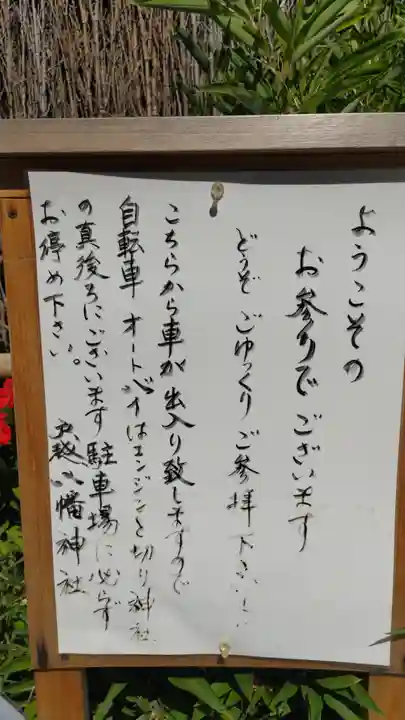 ようこその
お参りでございます
どうぞ ごゆっくり ご参拝下さい
こちらから車が出入り致しますので
自転車 オートバイはエンジンを切り神社
の真後ろにございます駐車場に必ず
お停め下さい。
戸越八幡神社